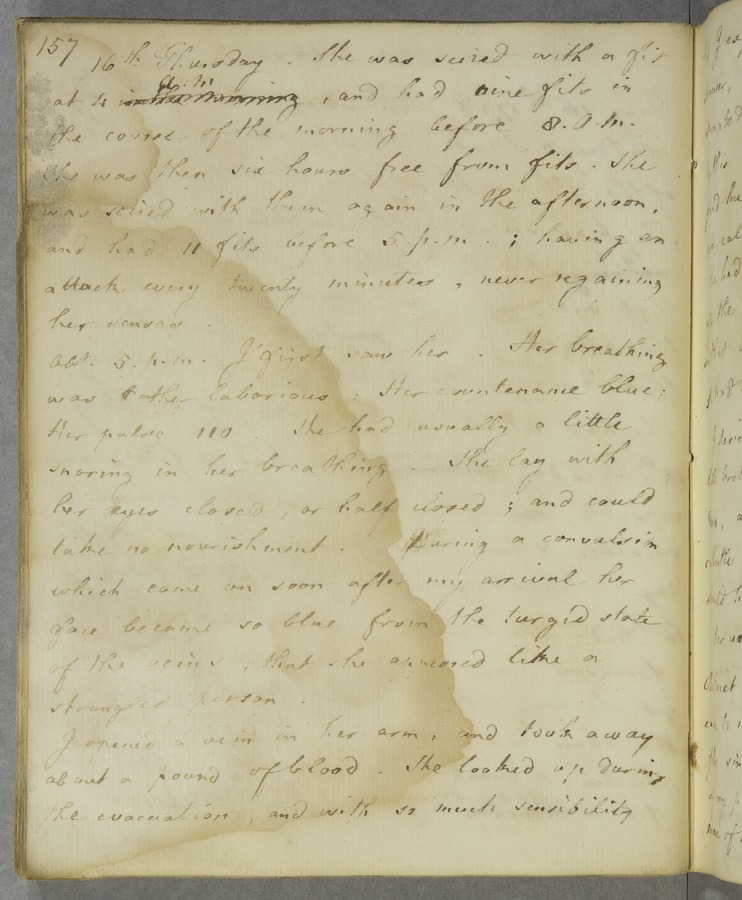 157
16th Thursday. She was seized with a fit
at 4 a.m. in the morning, and had nine fits in
the course of the morning before 8. A.M.
She was then six hours free from fits. She
was seized with them again in the afternoon,
and had 11 fits before 5. p.m.; having an
attack every twenty minutes, never regaining
her senses.
Abt. 5. p.m. I first saw her. Her breathing
was rather laborious: Her countenance blue:
Her pulse 110. She had usually a little
snoring in her breathing. She lay with
her eyes closed, or half closed; and could
take no nourishment. During a convulsion
which came on soon after my arrival her
face became so blue from the turgid state
of the veins, that she appeared like a
strangled person.
I opened a vein in her arm, and took away
about a pound of blood. She looked up during
the evacuation, and with so much sensibility